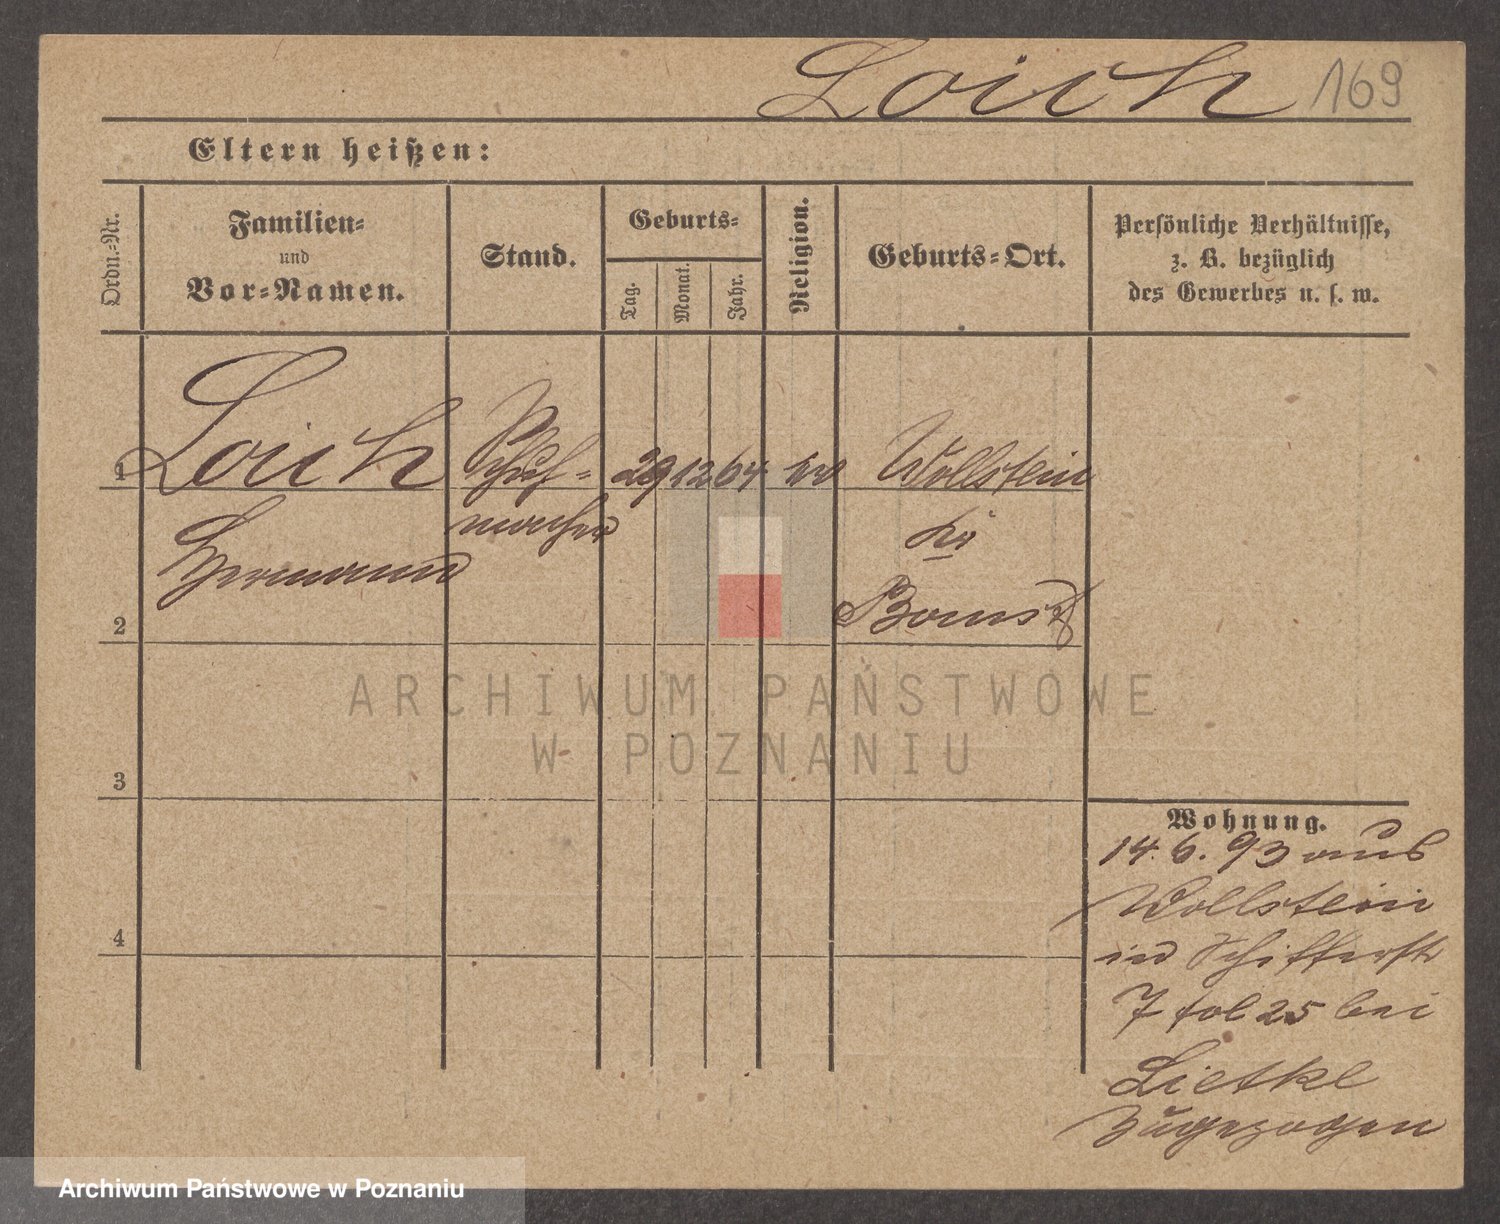 Loich 169
Eltern heißen:
Ordn.=Nr.
Familien=
und
Vor=Namen.
Stand.
Geburts=
Tag.
Monat.
Jahr.
Religion.
Geburts=Ort.
Persönliche Verhältnisse,
z. B. bezüglich
des Gewerbes u. s. w.
1 Loich Schuh= 29 12 64 ev Wollstein
macher Kr
Hermann
2 Bomst
ARCHIWUM PAŃSTWOWE
W POZNANIU
3
Wohnung.
14. 6. 93 aus
Wollstein
4
in Schifferstr
7 fol 25 bei
Lietke
zugezogen
Archiwum Państwowe w Poznaniu